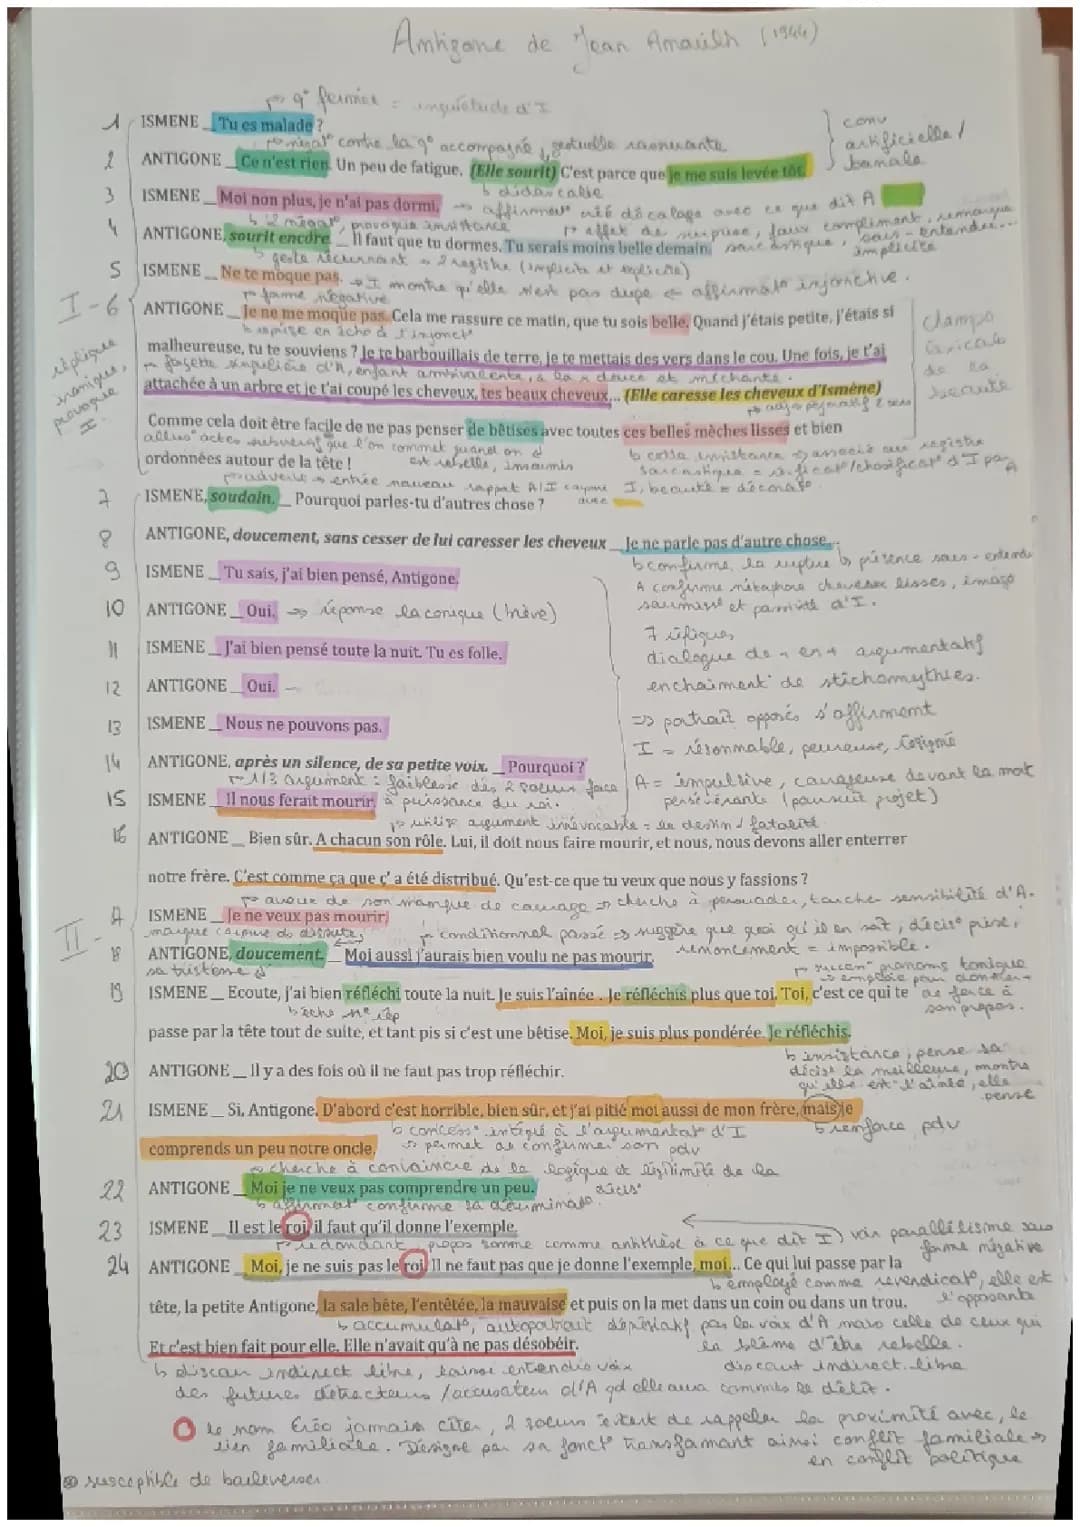 Antigone de Jean Anouilh (1944)
↳ q° fermée = inquiétude d'I
1 ISMENE _ Tu es malade ?
conv artificielle / banale
négat° contre la q° accompagné, gestuelle rassurante
2 ANTIGONE _ Ce n'est rien. Un peu de fatigue. (Elle sourit) C'est parce que je me suis levée tôt.
↳ didascalie
3 ISMENE _ Moi non plus, je n'ai pas dormi.
→ affirmat° crée décalage avec ce que dit A
↳ 2 négat°, provoque insistance
effet de surprise, faux compliment, remarque sarcastique, sous-entendu... implicite
4 ANTIGONE, sourit encore. _ Il faut que tu dormes. Tu serais moins belle demain.
↳ geste récurrent → 2 registre (implicite et explicite)
5 ISMENE _ Ne te moque pas.
→ I montre qu'elle n'est pas dupe affirmat° injonctive.
forme négative
I - 6 ANTIGONE _ Je ne me moque pas. Cela me rassure ce matin, que tu sois belle. Quand j'étais petite, j'étais si
↳ reprise en écho à l'injonct°
malheureuse, tu te souviens ? Je te barbouillais de terre, je te mettais des vers dans le cou. Une fois, je t'ai
facette singulière d'A, enfant ambivalente, à la x douce et méchante.
attachée à un arbre et je t'ai coupé les cheveux, tes beaux cheveux... (Elle caresse les cheveux d'Ismène)
réplique ironique, provoque I.
champs lexicale de la beauté
Comme cela doit être facile de ne pas penser de bêtises avec toutes ces belles mèches lisses et bien
allus° actes que l'on commet quand on est rebelle, insoumis
ordonnées autour de la tête !
7 ISMENE, soudain. _ Pourquoi parles-tu d'autres chose ?
8 ANTIGONE, doucement, sans cesser de lui caresser les cheveux _ Je ne parle pas d'autre chose...
↳ confirme la rupture ↳ présence sous-entendu
A confirme métaphore cheveux lisses, image
soumise et passivité d'I.
9 ISMENE _ Tu sais, j'ai bien pensé, Antigone.
10 ANTIGONE _ Oui. → réponse laconique (brève)
7 répliques
dialogue de + en + argumentatif
enchaînement de stichomythies.
11 ISMENE _ J'ai bien pensé toute la nuit. Tu es folle.
12 ANTIGONE _ Oui.
13 ISMENE _ Nous ne pouvons pas.
⇒ portrait opposés s'affirment
I = résonnable, peureuse, résigné
14 ANTIGONE, après un silence, de sa petite voix. _ Pourquoi ?
A = impulsive, courageuse devant la mort
persévérante (poursuit projet)
1/3 argument : faiblesse des 2 sœurs face
15 ISMENE _ Il nous ferait mourir.
à puissance du roi.
utilise argument irrévocable = le destin / fatalité
16 ANTIGONE _ Bien sûr. A chacun son rôle. Lui, il doit nous faire mourir, et nous, nous devons aller enterrer
notre frère. C'est comme ça que ç'a été distribué. Qu'est-ce que tu veux que nous y fassions ?
aveux de son manque de courage → cherche à persuader, toucher sensibilité d'A.
II - 17 ISMENE _ Je ne veux pas mourir.
conditionnel passé → suggère que quoi qu'il en soit, décis° prise,
renoncement = impossible.
18 ANTIGONE, doucement. _ Moi aussi j'aurais bien voulu ne pas mourir.
sa tristesse
19 ISMENE _ Ecoute, j'ai bien réfléchi toute la nuit. Je suis l'ainée . Je réfléchis plus que toi. Toi, c'est ce qui te
passe par la tête tout de suite, et tant pis si c'est une bêtise. Moi, je suis plus pondérée. Je réfléchis.
↳ insistance, pense sa
décis° la meilleure, montre
qu'elle est l'aînée, elle
pense
20 ANTIGONE _ Il y a des fois où il ne faut pas trop réfléchir.
21 ISMENE _ Si, Antigone. D'abord c'est horrible, bien sûr, et j'ai pitié moi aussi de mon frère, mais je
↳ concess° intégré à l'argumentat° d'I
↳ renforce pdv
→ permet de confirmer son pdv
comprends un peu notre oncle.
cherche à convaincre de la logique et légitimité de la
décis°
22 ANTIGONE _ Moi je ne veux pas comprendre un peu.
↳ affirmat° confirme sa déterminat°.
23 ISMENE _ Il est le roi, il faut qu'il donne l'exemple.
redondant, propos sonne comme antithèse à ce que dit I) voir parallélisme sous
forme négative
24 ANTIGONE _ Moi, je ne suis pas le roi. Il ne faut pas que je donne l'exemple, moi... Ce qui lui passe par la
↳ employé comme revendicat°, elle est
l'opposante
tête, la petite Antigone, la sale bête, l'entêtée, la mauvaise et puis on la met dans un coin ou dans un trou.
↳ accumulat°, autoportrait dépréciatif par la voix d'A mais celle de ceux qui
la blâme d'être rebelle.
Et c'est bien fait pour elle. Elle n'avait qu'à ne pas désobéir.
↳ discours indirect libre, laisse entendre voix
discours indirect libre
des futures détracteurs / accusateurs d'A qd elle aura commis le délit.
le nom Créo jamais citer, 2 sœurs évitent de rappeler la proximité avec, le
lien familiale. Désigne par sa fonct° transformant ainsi conflit familiale →
en conflit politique
susceptible de bouleverser